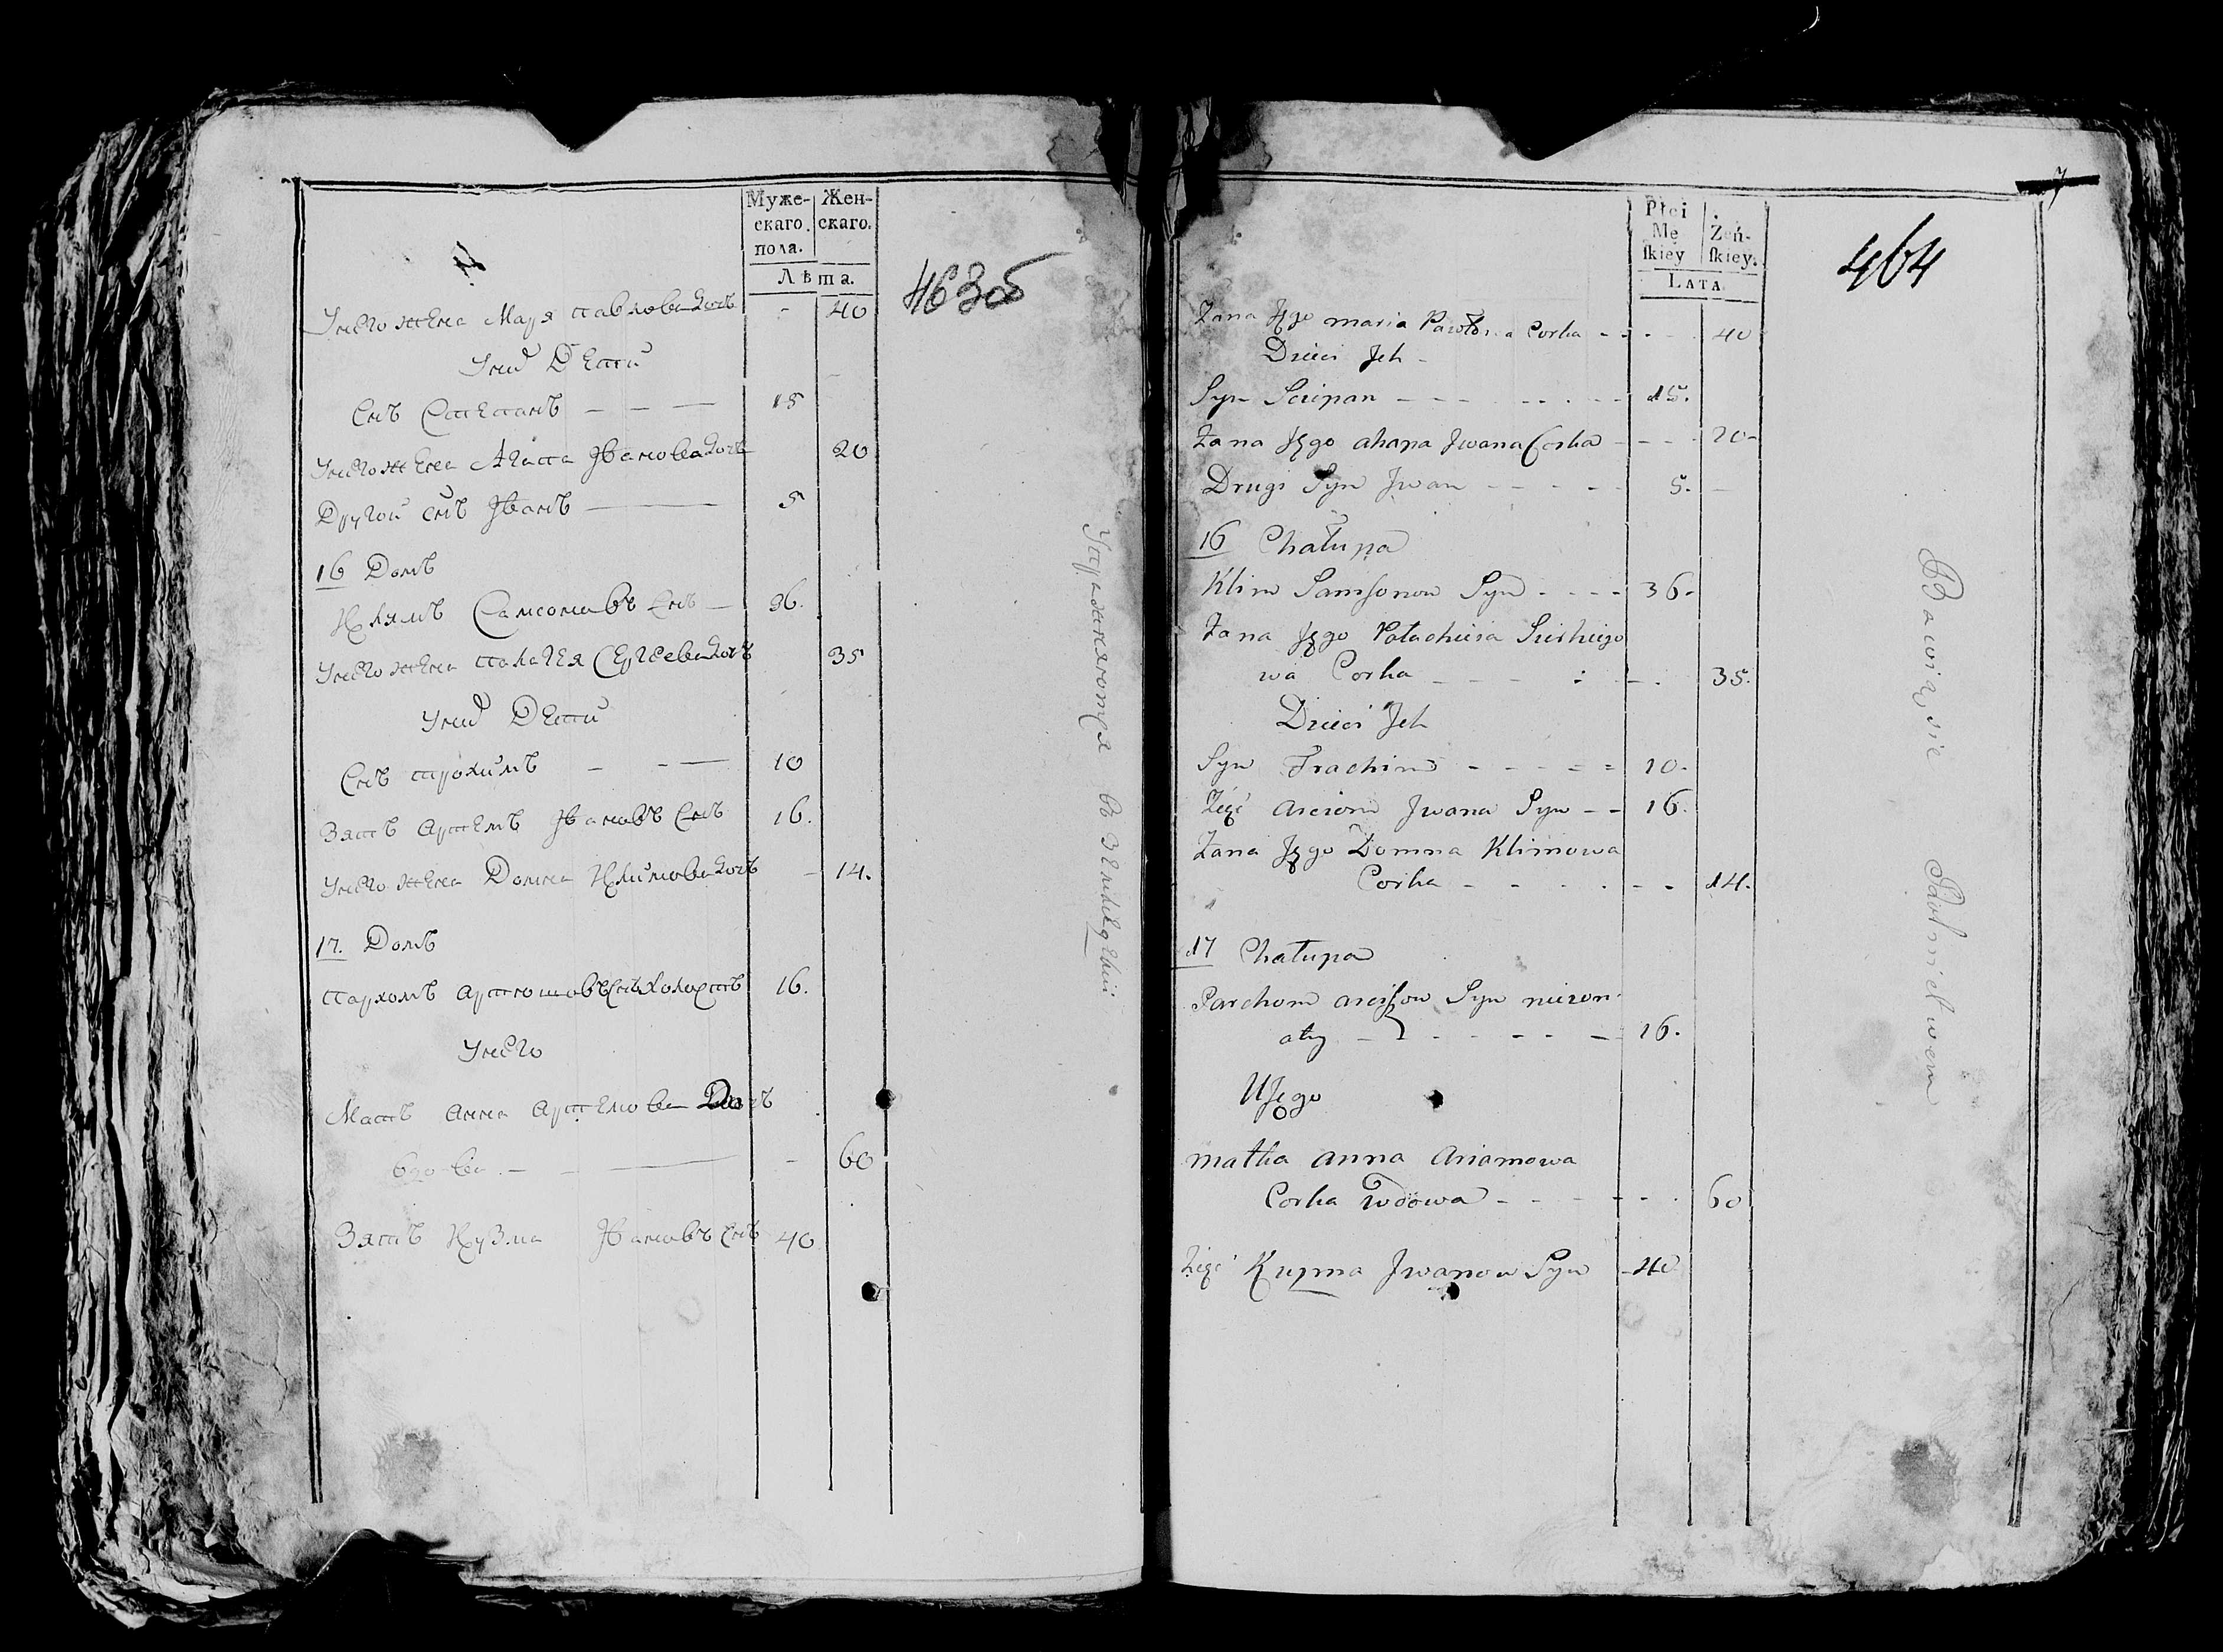 Муже- Жен-
скаго скаго.
пола.
Лѣта.
463об
Унего жена Маря павлова дочь - 40
Уних Дети
Снъ Степанъ — — — 15
Унего жена Агапа Иванова дочь 20
Другой снъ Иванъ — 5
16 Домъ
Клімъ Самсоновъ снъ — 36.
Унего жена палагея Сергеева дочь 35
Уних Дети
Снъ трохимъ - - — 10
Зять Артемъ Ивановъ Снъ 16.
Унего жена Домна Климова дочь - 14.
17. Домъ
пархомъ артюшовъ Снъ холостъ 16.
Унего
Мать анна артемова Дочь
вдова. — - — - 60
Зять Кузма Ивановъ снъ 40
Упражняютца въ Земледелии
7
Płci Żeń-
Mę skiey.
skiey
LATA
464
Żana Jęgo maria Pawłowa Corka - - - - 40
Dzieci Jch -
Syn Sciepan - - - - - - - 15.
Żana Jęgo ahapa Jwana Corka - - - 20-
Drugi Syn Jwan - - - - - 5. -
16 Chałupa
Klim Samsonow Syn - - - - 36-
Żana Jęgo Połachieia Sierhiejo
wa Corka - - - : - . 35.
Dzieci Jch
Syn Trachim - - - - = 10-
Zięć arciom Jwana Syn - - 16.
Żana Jęgo Domna Klimowa
Corka - - - - - - 14.
17 Chałupa
Parchom arciszow Syn nieżon
aty - - - - - - 16.
U Jęgo
matka anna Arciamowa
Corka wdowa - - - - - - 60
Zięć Kuzma Jwanow Syn - 40
Bawią sie Rolnictwem